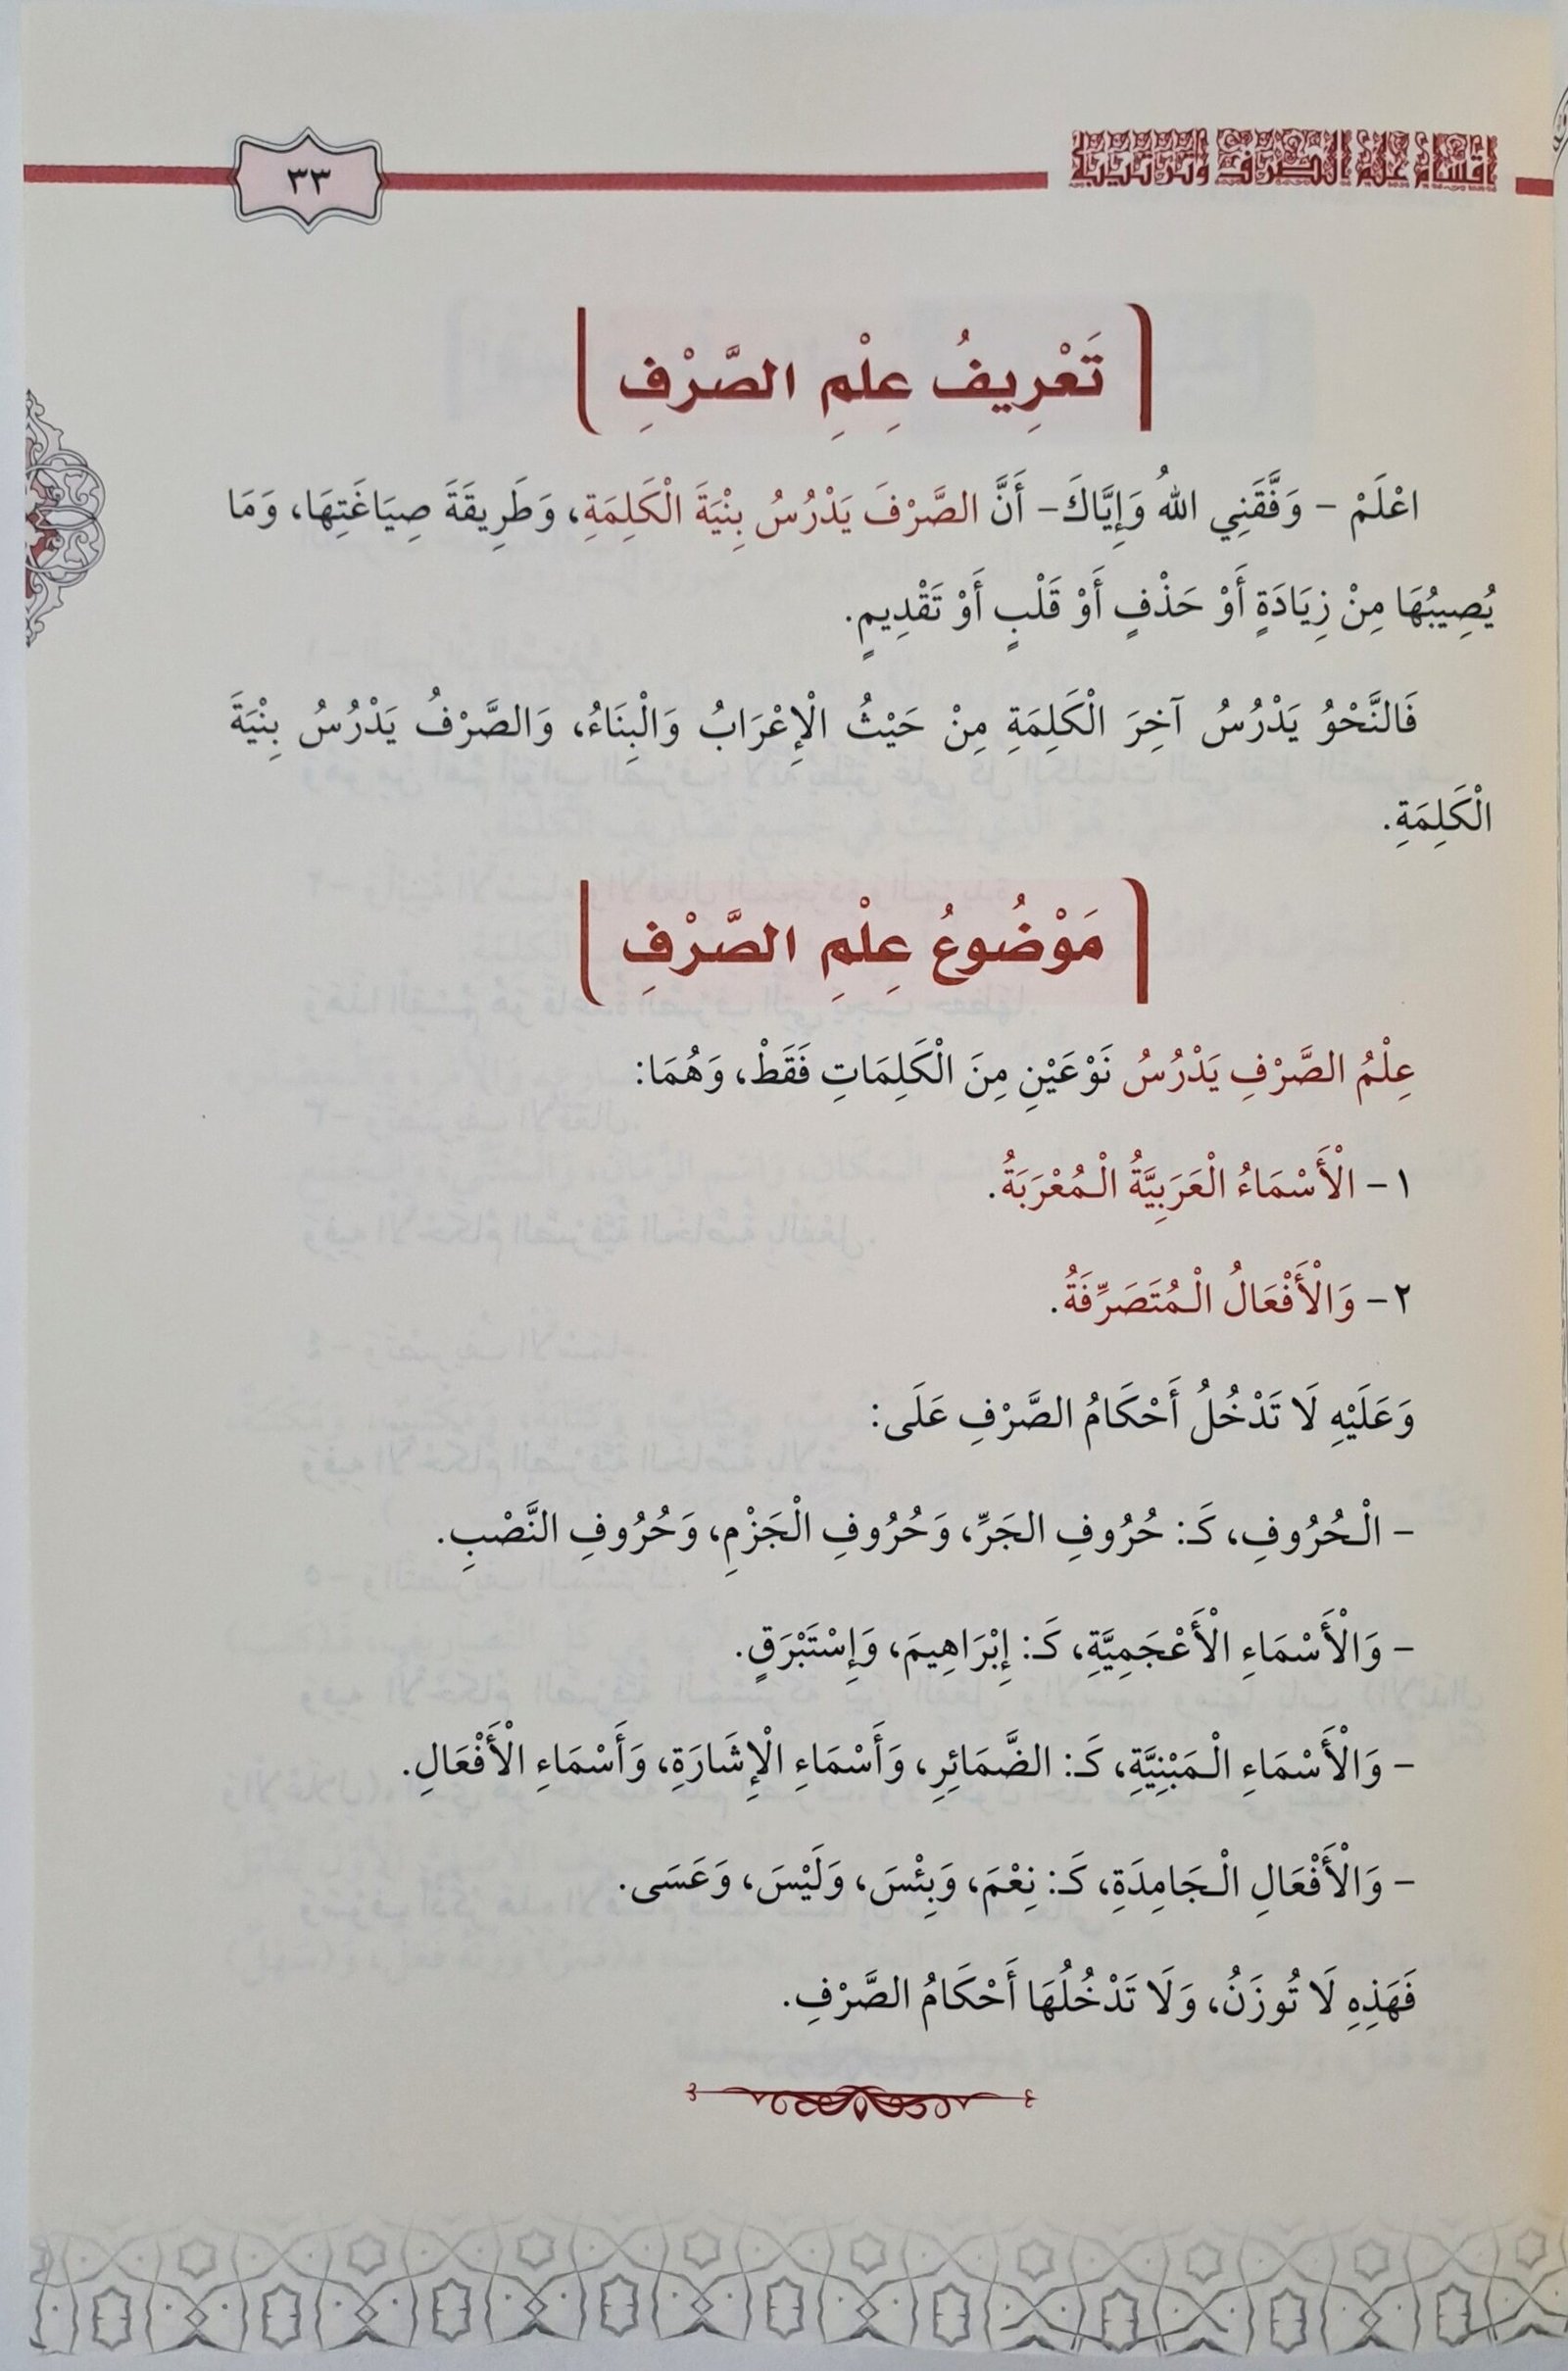 أقسام علم الصرف وترتيبه
٣٣
تَعْرِيفُ عِلْمِ الصَّرْفِ
اعْلَمْ – وَفَّقَنِي اللهُ وَإِيَّاكَ– أَنَّ الصَّرْفَ يَدْرُسُ بِنْيَةَ الْكَلِمَةِ، وَطَرِيقَةَ صِيَاغَتِهَا، وَمَا
يُصِيبُهَا مِنْ زِيَادَةٍ أَوْ حَذْفٍ أَوْ قَلْبٍ أَوْ تَقْدِيمٍ.
فَالنَّحْوُ يَدْرُسُ آخِرَ الْكَلِمَةِ مِنْ حَيْثُ الْإِعْرَابُ وَالْبِنَاءُ، وَالصَّرْفُ يَدْرُسُ بِنْيَةَ
الْكَلِمَةِ.
مَوْضُوعُ عِلْمِ الصَّرْفِ
عِلْمُ الصَّرْفِ يَدْرُسُ نَوْعَيْنِ مِنَ الْكَلِمَاتِ فَقَطْ، وَهُمَا:
١– الْأَسْمَاءُ الْعَرَبِيَّةُ الْمُعْرَبَةُ.
٢– وَالْأَفْعَالُ الْمُتَصَرِّفَةُ.
وَعَلَيْهِ لَا تَدْخُلُ أَحْكَامُ الصَّرْفِ عَلَى:
– الْحُرُوفِ، كَـ: حُرُوفِ الجَرِّ، وَحُرُوفِ الْجَزْمِ، وَحُرُوفِ النَّصْبِ.
– وَالْأَسْمَاءِ الْأَعْجَمِيَّةِ، كَـ: إِبْرَاهِيمَ، وَإِسْتَبْرَقٍ.
– وَالْأَسْمَاءِ الْمَبْنِيَّةِ، كَـ: الضَّمَائِرِ، وَأَسْمَاءِ الْإِشَارَةِ، وَأَسْمَاءِ الْأَفْعَالِ.
– وَالْأَفْعَالِ الْجَامِدَةِ، كَـ: نِعْمَ، وَبِئْسَ، وَلَيْسَ، وَعَسَى.
فَهَذِهِ لَا تُوزَنُ، وَلَا تَدْخُلُهَا أَحْكَامُ الصَّرْفِ.